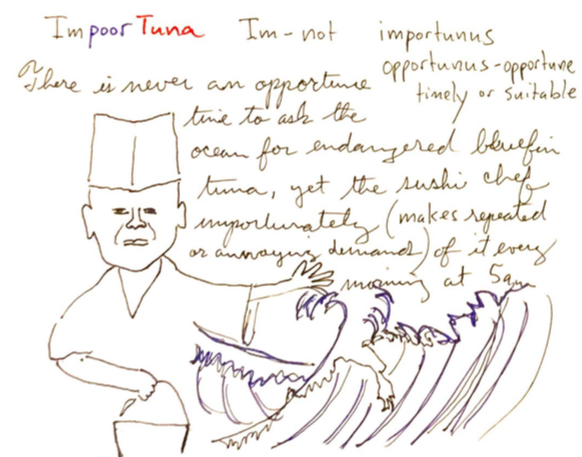 Im poor Tuna Im - not importunus
opportunus - opportune
timely or suitable
There is never an opportune
time to ask the
ocean for endangered bluefin
tuna, yet the sushi chef
importunately (makes repeated
or annoying demands) of it every
morning at 5am